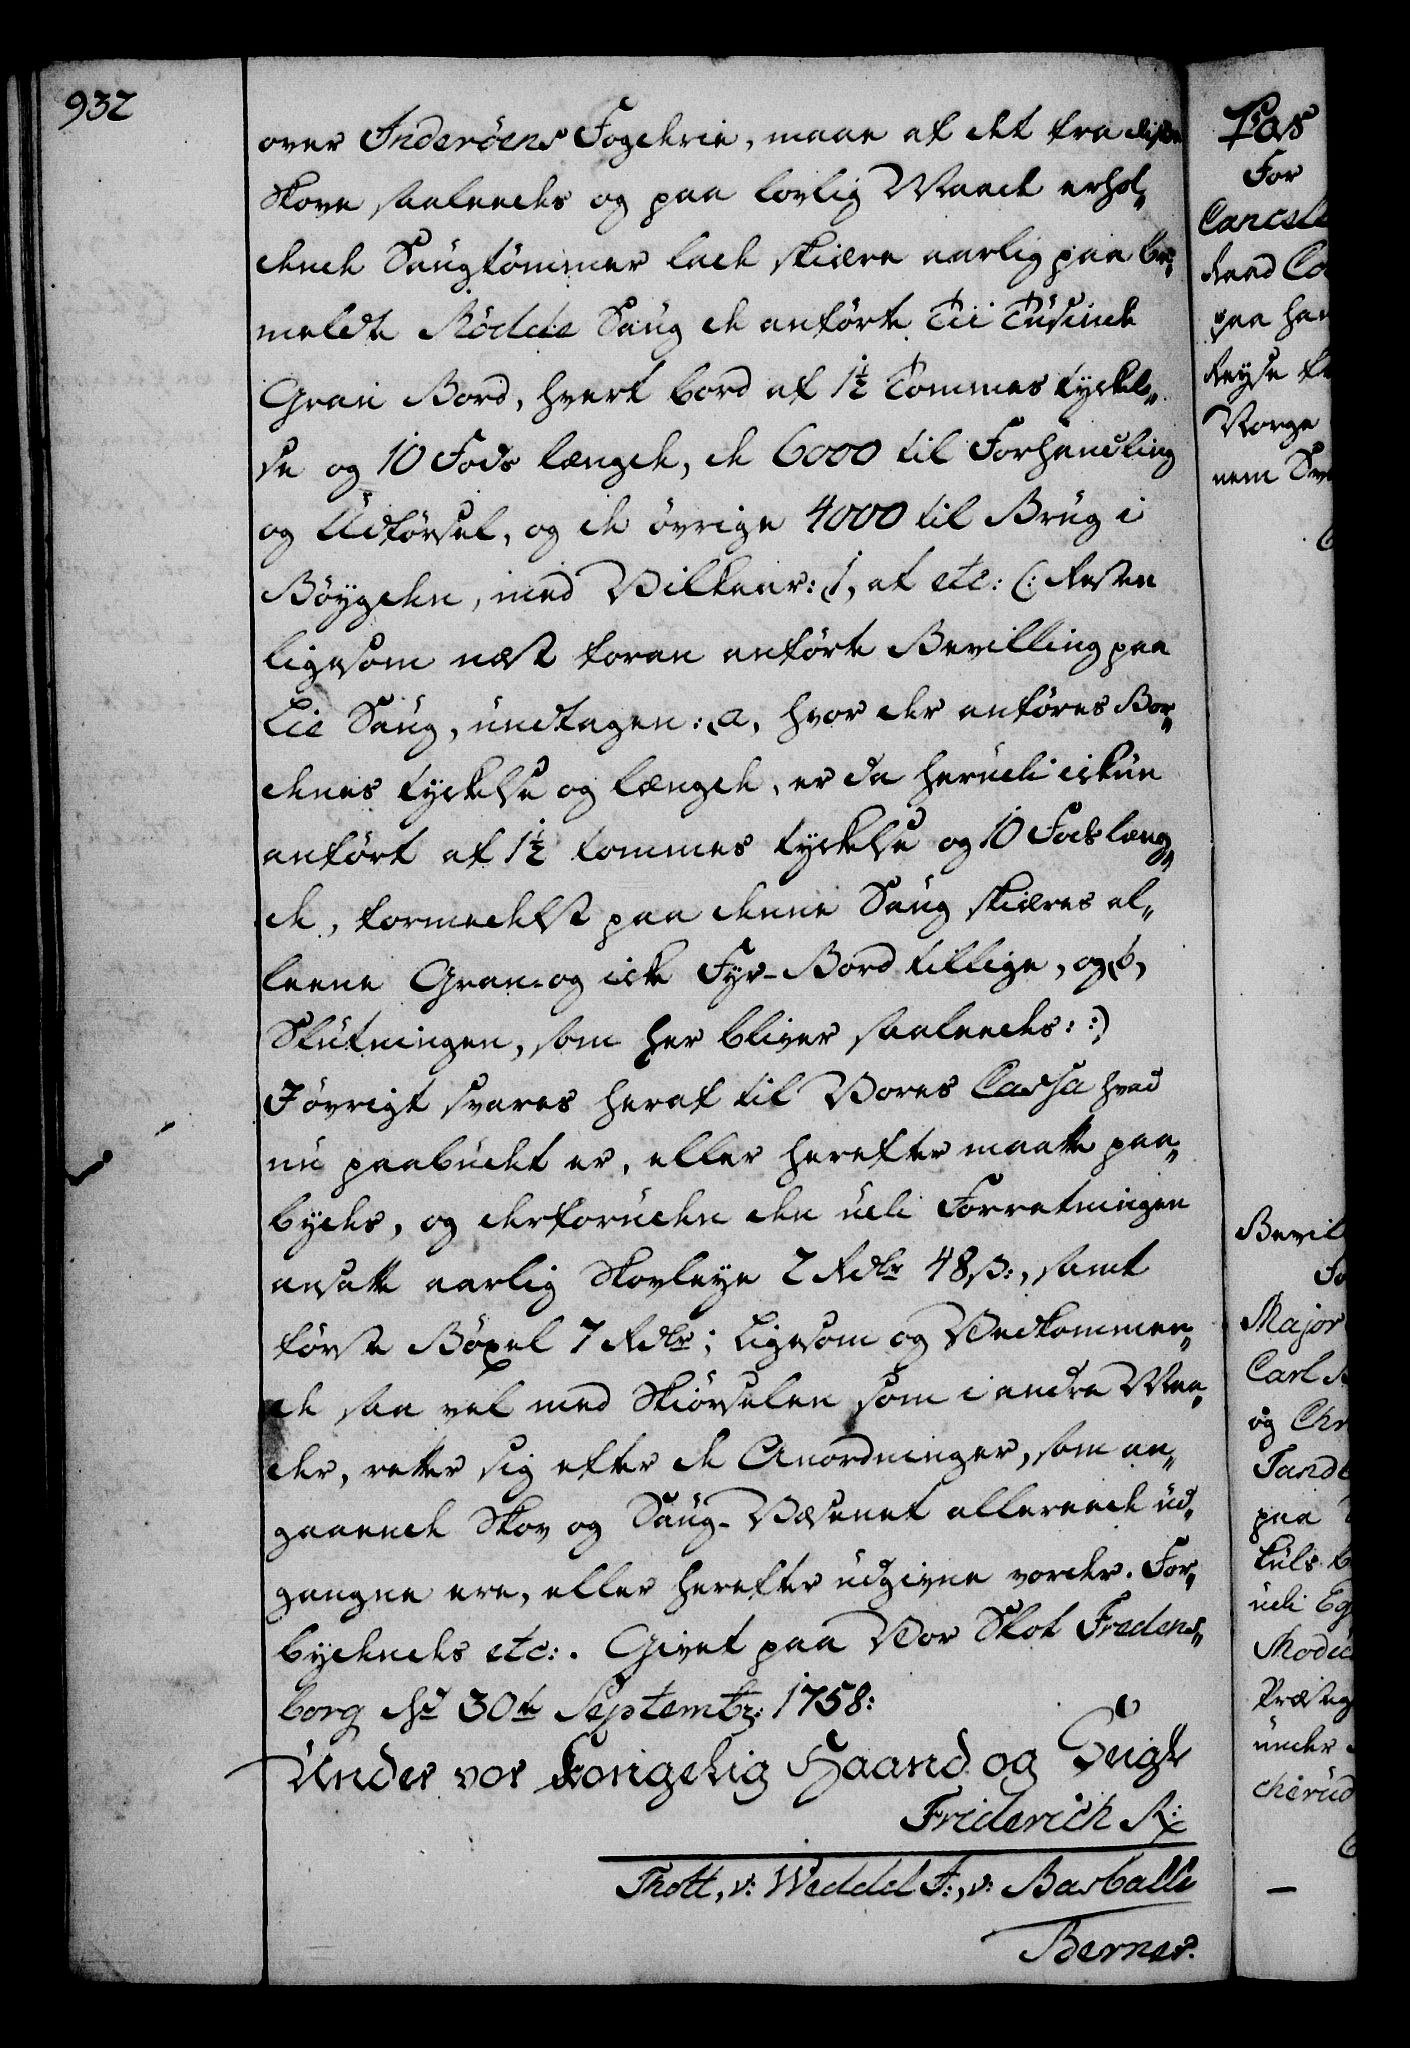 932
over Inderöens Fogderie, maae af det fra disse
Skove saaleedes og paa lovlig Maade erhol„
dende Saugtömmer lade skiære aarlig paa be„
meldte Rödde Saug de anförte Tii Tusinde
Gran Bord, hvert bord af 1½ Tommes tyckel„
se og 10 Fods længde, de 6000 til Forhandling
og Udförsel, og de övrige 4000 til Brug i
Böygden, med Vilkaar: 1, at etc: (: Resten
ligesom næst foran anförte Bevilling paa
Lie Saug, undtagen: a, hvor der anföres Bor„
denes tyckelse og længde, er da herudi ickun
anfört af 1½ tommes tyckelse og 10 Fods læng„
de, formedelst paa denne Saug skiæres al„
leene Gran- og icke Fyr-Bord tillige, og b,
Slutningen, som her bliver saaleedes: :)
I övrigt svares heraf til Vores Cassa hvad
nu paabudet er, eller herefter maatte paa„
bydes, og derforuden den udi Forretningen
ansatte aarlig Skovleye 2 Rdlr 48 s:, samt
förste Böxel 7 Rdlr; ligesom og Vedkommen„
de saa vel med Skiörselen som i andre Maa„
der, retter sig efter de Anordninger, som an„
gaaende Skov og Saug-Væsenet allereede ud„
gangne ere, eller herefter udgivne vorder. For„
bydendes etc:. Givet paa Vor Slot Fredens„
borg dend 30te Septembr: 1758:
Under vor Kongelig Haand og Seigl
Friderich R:
Thott, v: Weddel F:, v: Barballe
Berner.
Pas
For
Cancell
Raad Co
paa han
Reyse
Norge
nem Sve
Bevil
Fo
Major
Carl
og Chr
Tand
paa
udi Eg
Præsteg
under